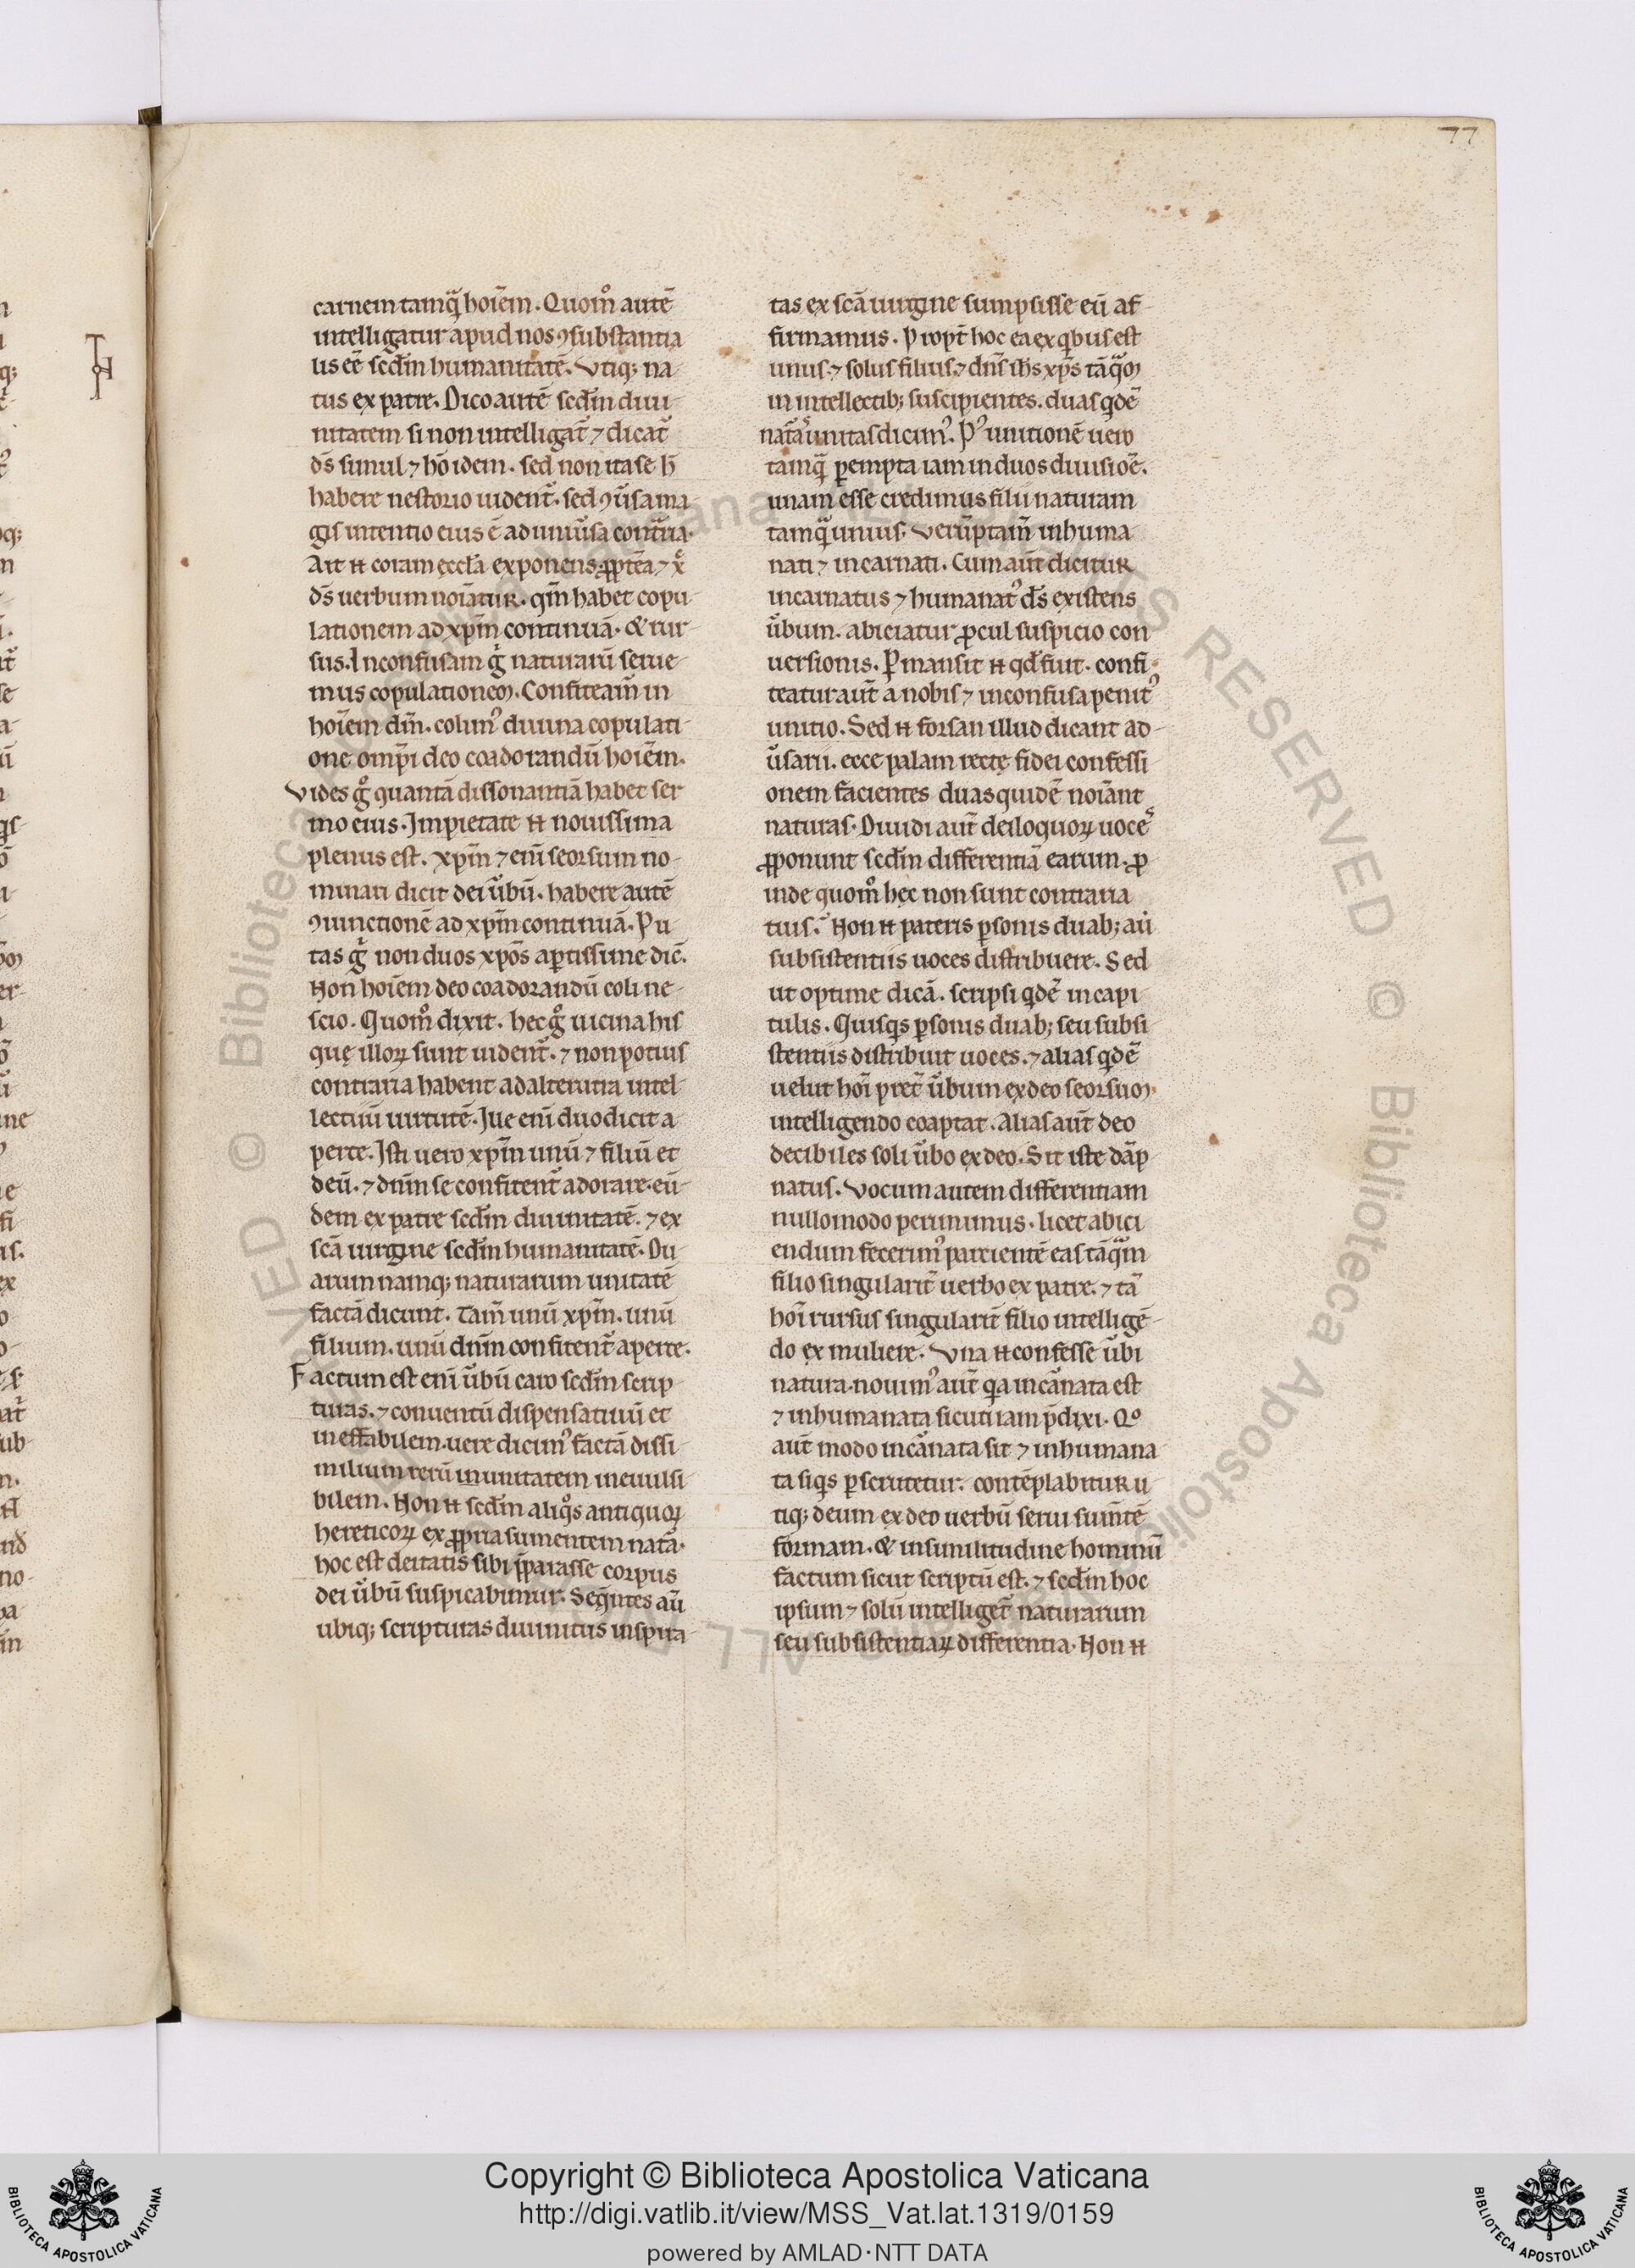 77
carnem tamq̃ hoiẽm. Quom̊ autẽ
intelligatur apud nos ꝯsubstantia
lis eẽ scd̃m humanitatẽ. Vtiq; na-
tus ex patre. Dico autẽ scd̃m diui-
nitatem si non intelligat̃ ⁊ dicat̃
ds̃ simul ⁊ hõ idem. sed non ita se h̃
habere nestorio uident̃. sed ꝯũsa ma-
gis intentio eius ẽ ad uniũsa cont̃ria.
Ait ꞇꞇ coram eccl̃a exponens ꝓptẽa ⁊ xp̃c
ds̃ uerbum noiãtur. qm̃ habet copu-
lationem ad xp̃m continuã. & rur-
sus. Inconfusam g̃ naturarũ serue-
mus copulationem. Confiteam̃ in
hoiẽm dm̃. colimꝰ diuina copulati-
one omp̃i deo coadorandũ hoiẽm.
Vides g̊ quantã dissonantiã habet ser
mo eius. Impietate ꞇꞇ nouissima
plenus est. xp̃m ⁊ eni᷃ seorsum no-
minari dicit dei ũbũ. habere autẽ
ꝯiunctionẽ ad xp̃m continuã. Pu
tas g̊ non duos xp̃os aꝑtissime dic̃.
Non hoiẽm deo coadorandũ coli ne-
scio. Quom̊ dixit. hec g̊ uicina his
quę illoꝝ sunt uident̃. ⁊ non potius
contraria habent ad alterutra intel-
lectuũ uirtutẽ. Ille eni᷃ duo dicit a
perte. Isti uero xp̃m unũ ⁊ filiũ et
deũ. ⁊ dnm̃ se confitent̃ adorare. eũ-
dem ex patre scd̃m diuinitatẽ. ⁊ ex
scã uirgine scd̃m humanitatẽ. Du-
arum namq; naturarum unitatẽ
factã dicunt. Tam̃ unũ xp̃m. unũ
filium. unũ dnm̃ confitent̃ aperte.
Factum est eni᷃ ũbũ caro scd̃m scrip-
turas. ⁊ conuentũ dispensatiuũ et
ineffabilem. uere dicimꝰ factã dissi-
milium rerũ in unitatem ineuulsi-
bilem. Non ꞇꞇ scd̃m aliqͦs antiquoꝝ
hereticoꝝ ex ꝓpria sumentem nat̃a.
hoc est deitatis sibi p̃parasse corpus
dei ũbũ suspicabimur. Seq̃ntes aũ
ubiq; scripturas diuinitus inspira-
tas ex scã uirgine sumpsisse eũ af-
firmamus. Propt̃ hoc ea ex qͥbus est
unus. ⁊ solus filius. ⁊ dñs ih̃s xp̃s tãq̃m
in intellectib; suscipientes. duas qͥdẽ
nat̃as unitas dicimꝰ. Pꝰ unitionẽ uero
tamq̃ ꝑempta iam in duos diuisiõe.
unam esse credimus filii naturam
tamq̃ unius. Verũptam̃ inhuma
nati ⁊ incarnati. Cum aũt dicitur
incarnatus ⁊ humanatꝰ ds̃ existens
ũbum. abiciatur ꝓcul suspicio con
uersionis. Ꝑmansit ꞇꞇ qd̃ fuit. confi-
teatur aũt a nobis ⁊ inconfusa penitꝰ
unitio. Sed ꞇꞇ forsan illud dicant ad-
ũsarii. ecce palam rectę fidei confessi
onem facientes duas quidẽ noiãnt
naturas. Diuidi aũt deiloquoꝝ uoces
ꝓponunt scd̃m differentiã earum. ꝓ
inde quom̊ hęc non sunt contraria
tuis. Non ꞇꞇ pateris ꝑsonis duab; aũ
subsistentiis uoces distribuere. Sed
ut optime dicã. scripsi qͥdẽ in capi
tulis. Quisqͥs ꝑsonis duab; seu subsi
stentiis distribuit uoces. ⁊ alias qͥdẽ
uelut hoi᷃ pret̃ ũbum ex deo seorsum
intelligendo coaptat. Alias aũt deo
decibiles soli ũbo ex deo. Sit iste dãp
natus. Vocum autem differentiam
nullo modo perimimus. licet abici
endum fecerimꝰ parcientẽ eas tãq̃m
filio singularit̃ uerbo ex patre. ⁊ tã
hoi᷃ rursus singularit̃ filio intelligẽ-
do ex muliere. Vna ꞇꞇ confesse ũbi
natura. nouimꝰ aũt qͥa incãnata est
⁊ inhumanata sicuti iam p̃dixi. Qͦ
aũt modo incãnata sit ⁊ inhumana
ta siqͥs ꝑscrutetur. contẽplabitur u
tiq; deum ex deo uerbũ serui suim̃tẽ
formam. & in similitudine hominũ
factum sicut scriptũ est. ⁊ scd̃m hoc
ipsum ⁊ solũ intelliget̃ naturarum
seu subsistentiaꝝ differentia. Non ꞇꞇ
Copyright © Biblioteca Apostolica Vaticana
http://digi.vatlib.it/view/MSS_Vat.lat.1319/0159
powered by AMLAD·NTT DATA
BIBLIOTECA APOSTOLICA VATICANA
BIBLIOTECA APOSTOLICA VATICANA